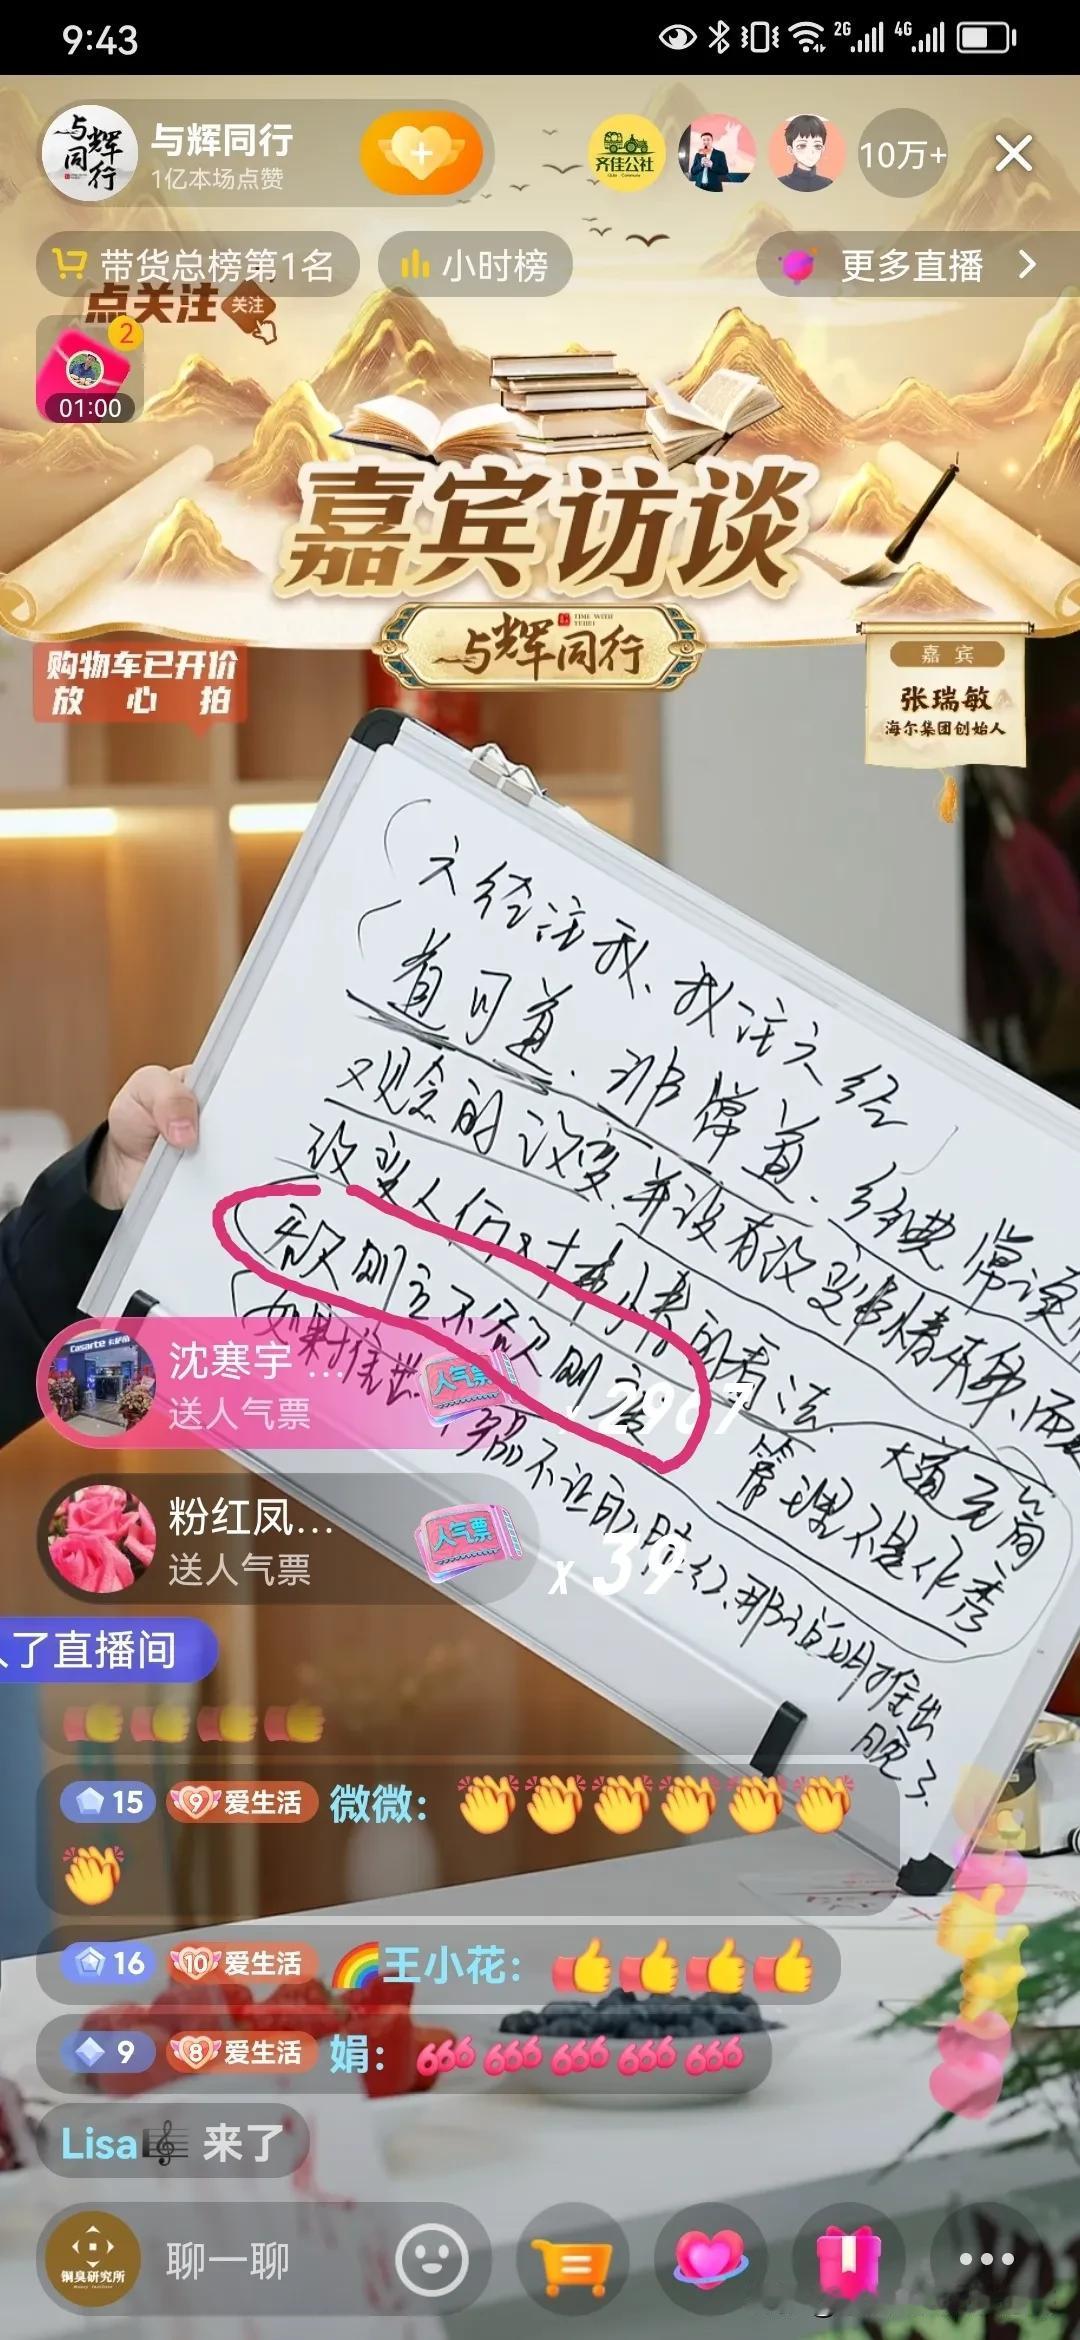 9:43
2G
4G
与辉同行
与辉同行
1亿本场点赞
齐佳公社
10万+
带货总榜第1名
小时榜
更多直播
点关注
关注
2
01:00
嘉宾访谈
与辉同行
TIME WITH YUHUI
购物车已开价
放心拍
嘉宾
张瑞敏
海尔集团创始人
六经注我、我注六经
道可道、非常道、经典常读
观念的改变并没有改变事情本身、而
改变人们对事情的看法 大道无间
欲则立不欲则废 管理不是作秀
如果推出
不让的
那就说明推出
晚了.
Casarte
沈寒宇...
送人气票
人气票
x 2967
粉红凤...
送人气票
人气票
x 39
了直播间
15 9 爱生活 微微:
16 10 爱生活 王小花:
9 8 爱生活 娟: 666 666 666 666 666
Lisa 来了
铜臭研究所
聊一聊